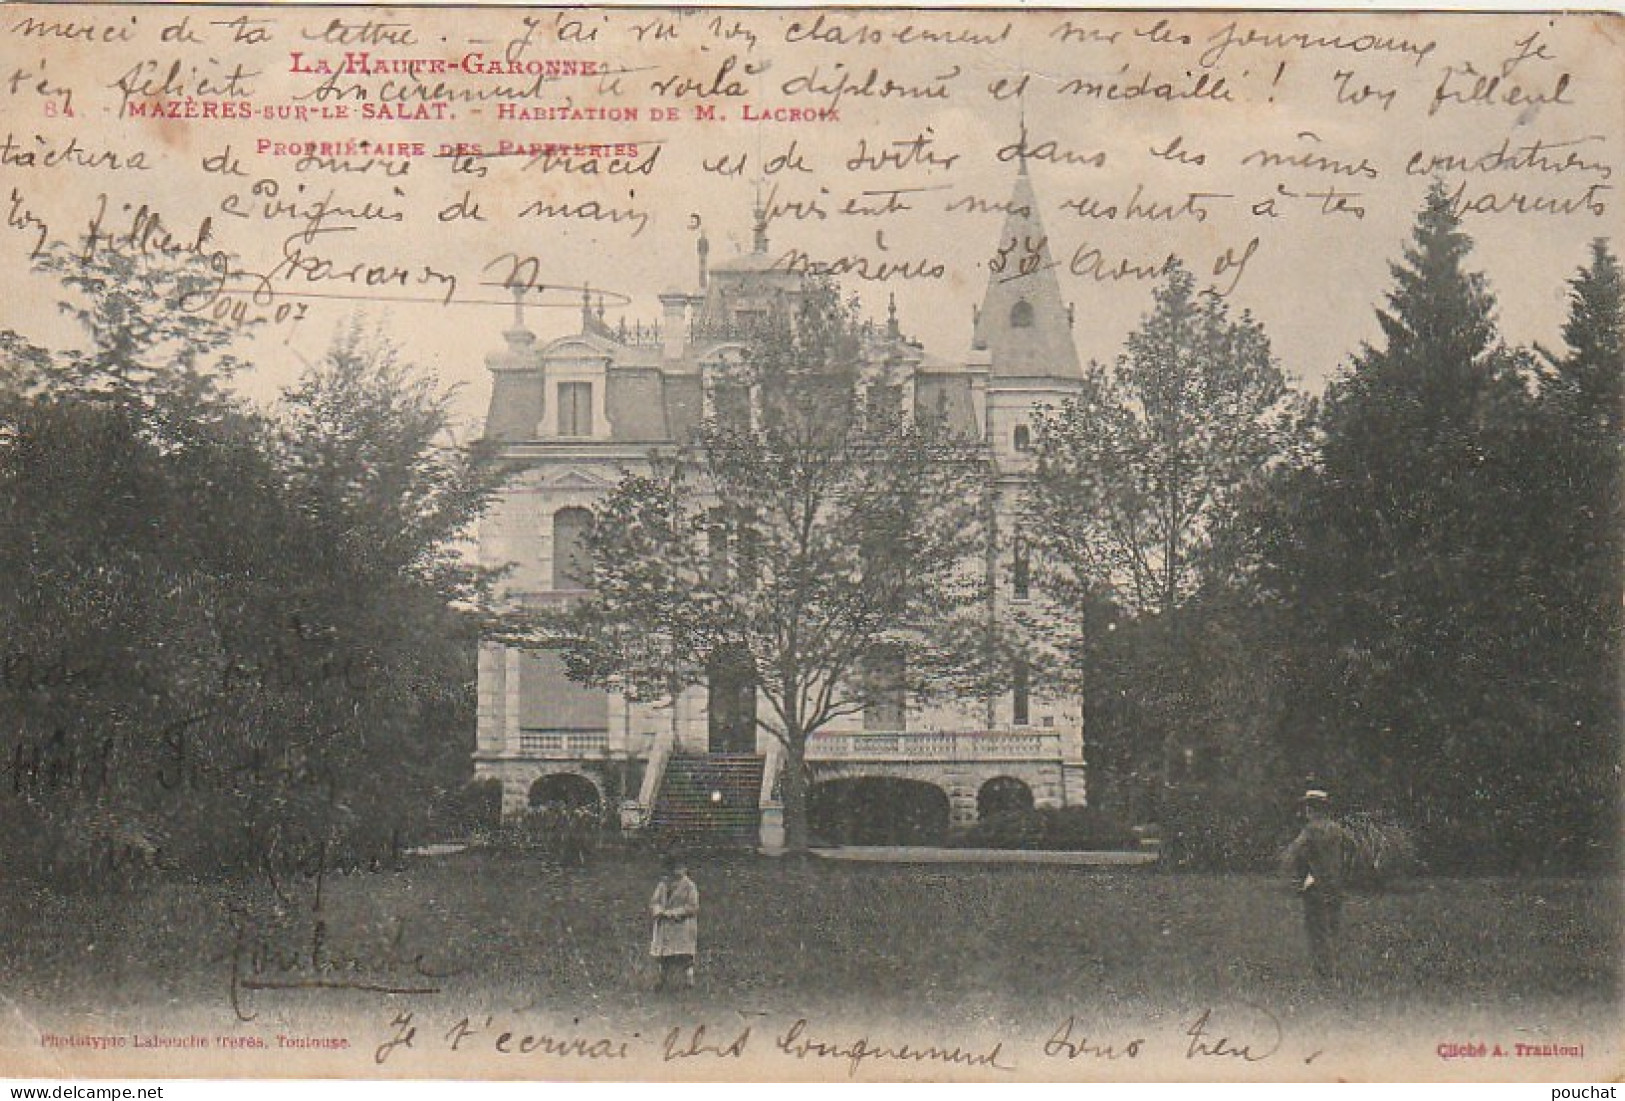 merci de ta lettre. - J'ai vu ton classement sur les journaux je
LA HAUTE-GARONNE
t'en félicite sincèrement, te voilà diplomé et médaillé! Ton filleul
84 - MAZÈRES-SUR-LE-SALAT. - HABITATION DE M. LACROIX
PROPRIÉTAIRE DES PAPETERIES
tâchera de suivre tes traces et de sortir dans les mêmes conditions
Poignées de main, présente mes respects à tes parents
Ton filleul
Mazères Août 05
04-07
Hôtel
rue Mignet
Toulouse
Phototypie Labouche frères, Toulouse.
Je t'écrirai plus longuement sous peu.
Cliché A. Trantoul
pouchat